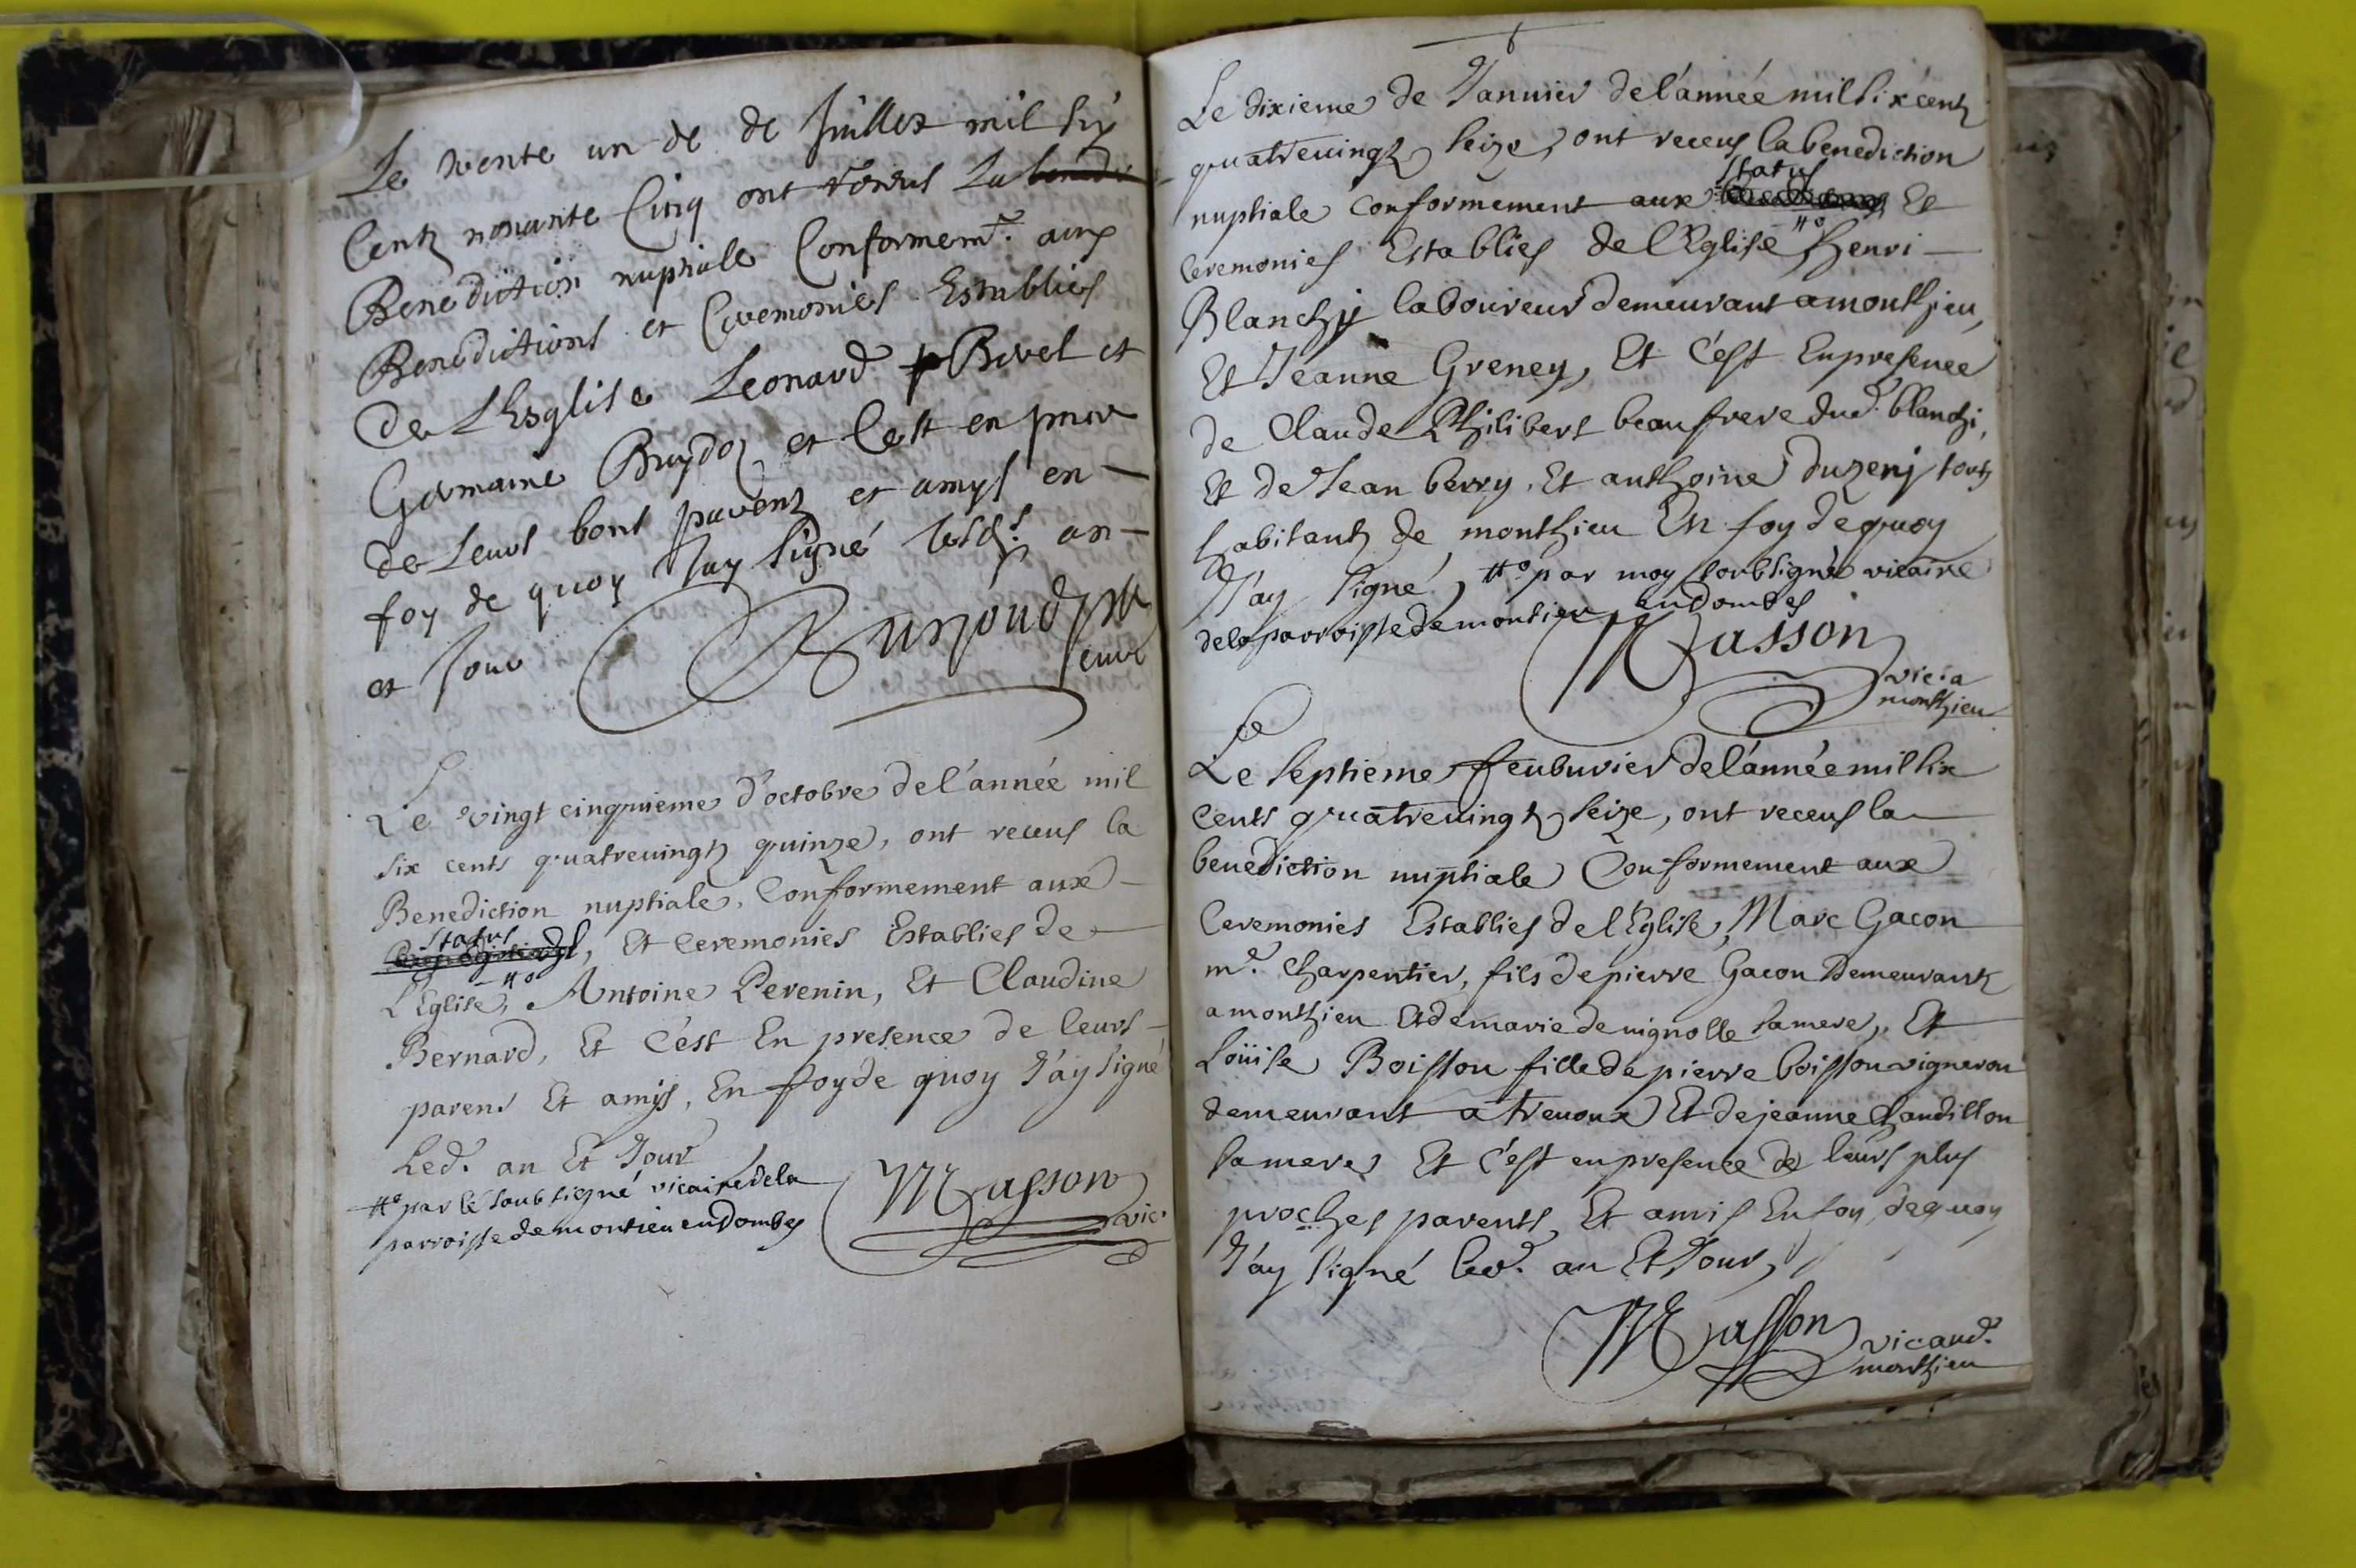 Le trente un de de Juillet mil six
Centz nonante Cinq ont receus La
Benediction nuptiale Conformemt. aux
Benedictions et Ceremonies Establies
De L'Esglise Leonard Bivel et
Germaine Buydoz et Cest en pnce
de Leurs bons parentz et amys en
foy de quoy J'ay signé lesds. an
et Jour
curé
Le vingt cinquieme d'octobre de l'année mil
six cents quatrevingtz quinze, ont receus la
Benediction nuptiale, Conformement aux
status
, Et Ceremonies Establies de
L'Eglise, Antoine Perenin, Et Claudine
Bernard, Et C'est En presence de leurs
parens Et amys, En foy de quoy J'ay signé
led. an Et Jour
par le soubsigné vicaire de la
parroisse de montieu en Dombes
Masson
vic.
Le dixieme de Januier de l'année mil six cents
quatrevingtz seize, ont receus la benediction
status
nuptiale Conformement aux Et
Ceremonies Establies de l'Eglise Henri
Blanchy laboureur demeurant a monthieu,
Et Jeanne Greney, Et C'est En presence
de Claude Philibert beaufrere dud. blanchi,
Et de Jean berry, Et anthoine duzenj touts
habitants de monthieu En foy de quoy
J'ay signé, par moy soubsigné vicaire
de la parroisse de montieu en dombes
Masson
vic. a
monthieu
Le Septieme feubvrier de l'année mil six
cents quatrevingtz seize, ont receus la
benediction nuptiale Conformement aux
Ceremonies Establies de l'Eglise, Marc Gacon
me. Charpentier, fils de pierre Gacon Demeurant
a monthieu Et de marie de vignolle sa mere, Et
Loüise Boisson fille de pierre boisson vigneron
demeurant a trevoux Et de jeanne Chandillon
sa mere, Et C'est en presence de leurs plus
proches parents, Et amis En foy de quoy
J'ay signé led. an Et Jour,
Masson
vic aud.
monthieu